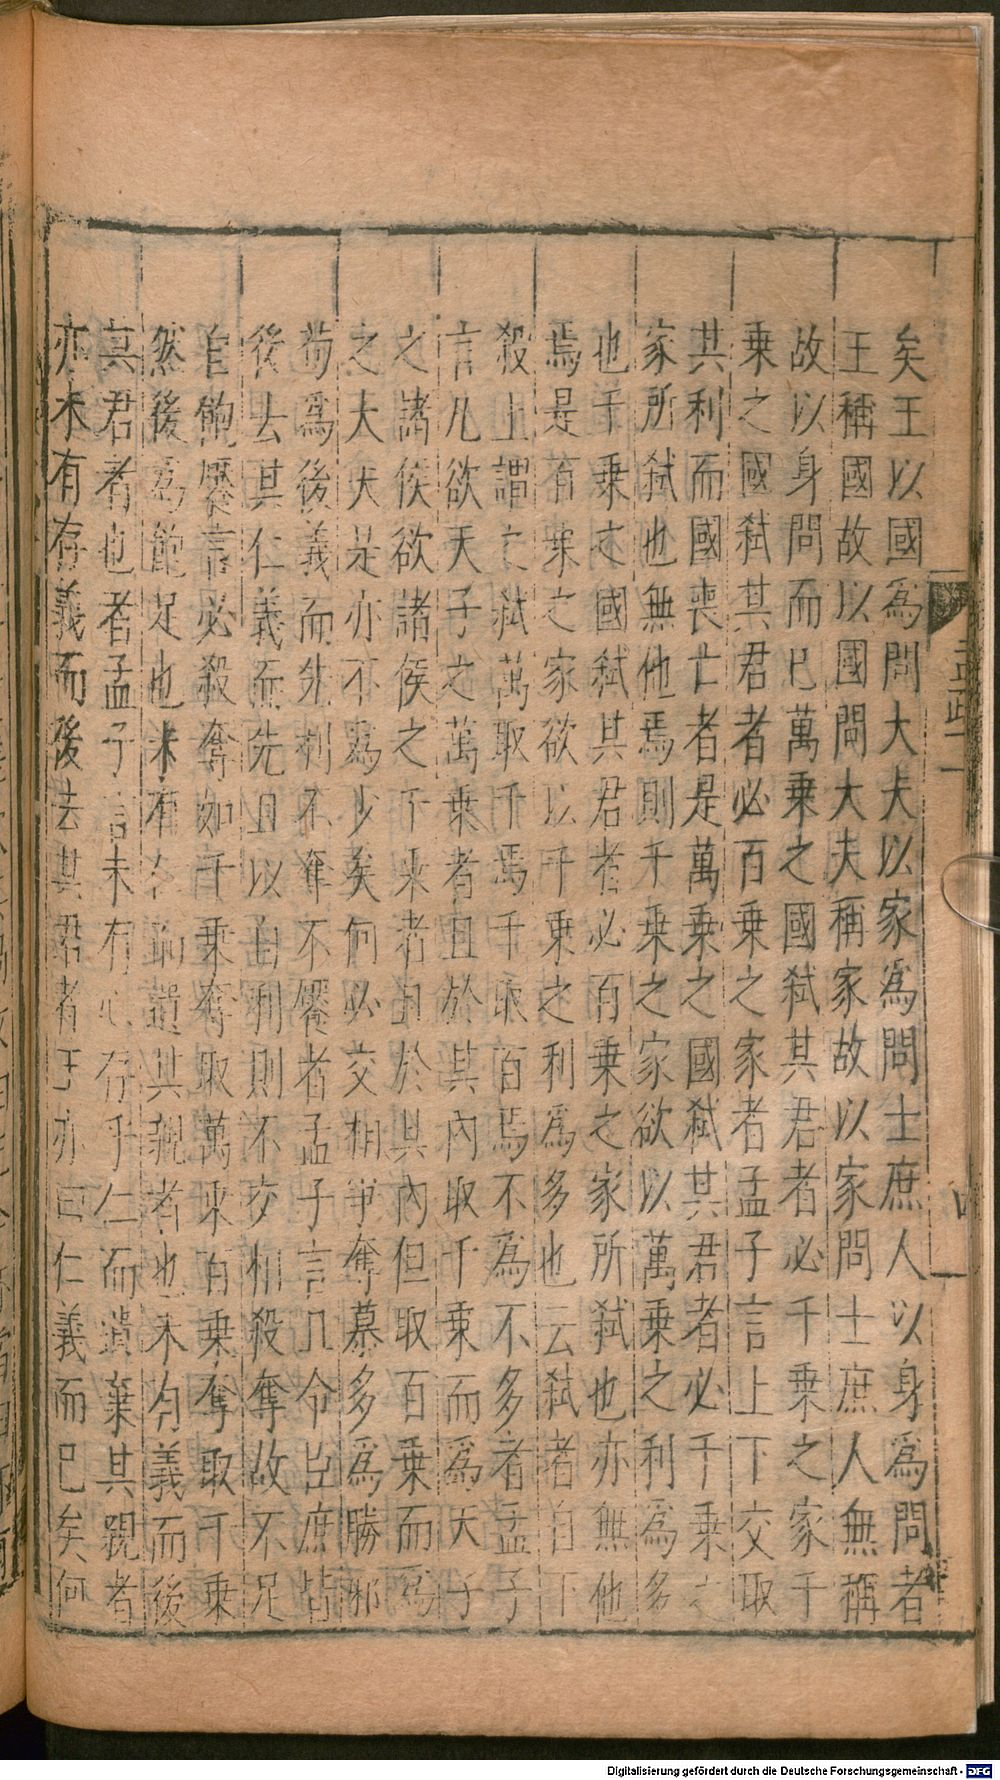 矣王以國爲問大夫以家爲問士庶人以身爲問者
王稱國故以國問大夫稱家故以家問士庶人無稱
故以身問而已萬乗之國弑其君者必千乗之家千
乗之國弑其君者必百乗之家者孟子言上下交取
其利而國喪亡者是萬乗之國弑其君者必千乗之
家所弑也無他焉則千乗之家欲以萬乗之利爲多
也千乗之國弑其君者必百乗之家所弑也亦無他
焉是百乗之家欲以千乗之利爲多也云弑者自下
殺上謂之弑萬取千焉千取百焉不爲不多者孟子
言凡欲天子之萬乗者且於其內取千乗而爲天子
之諸侯欲諸侯之千乗者且於其內但取百乗而爲
之大夫是亦不爲少矣何必交相爭奪慕多爲勝邪
苟爲後義而先利不奪不饜者孟子言凡今臣庶苟
後去其仁義而先且以自利則不交相殺奪故不足
自飽饜言必殺奪如千乗奪取萬乗百乗奪取千乗
然後爲飽足也未有仁而遺其親者也未有義而後
其君者也者孟子言未有心存乎仁而遺棄其親者
亦未有存義而後去其君者王亦曰仁義而已矣何
孟疏一
四
Digitalisierung gefördert durch die Deutsche Forschungsgemeinschaft - DFG